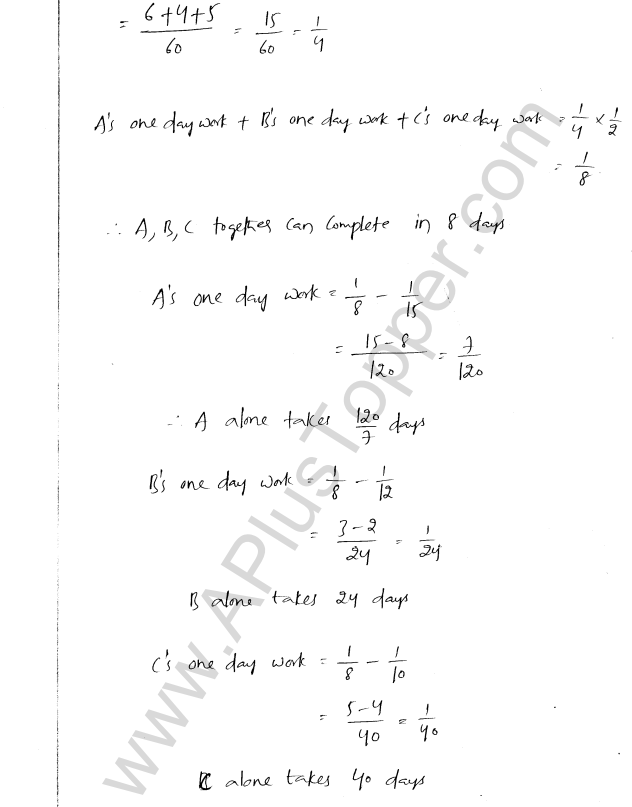 = 6+4+5/60 = 15/60 = 1/4
A's one day work + B's one day work + C's one day work = 1/4 × 1/2
= 1/8
∴ A, B, C together can complete in 8 days
A's one day work = 1/8 - 1/15
= 15-8/120 = 7/120
∴ A alone takes 120/7 days
B's one day work = 1/8 - 1/12
= 3-2/24 = 1/24
B alone takes 24 days
C's one day work = 1/8 - 1/10
= 5-4/40 = 1/40
C alone takes 40 days
www.APlusTopper.com